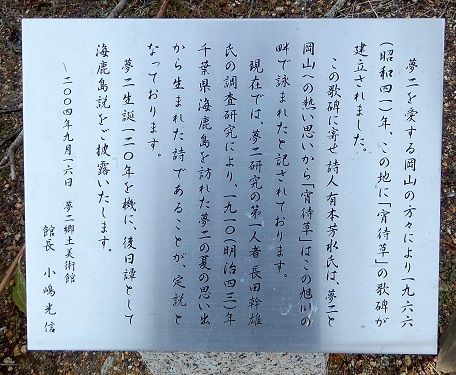 夢二を愛する岡山の方々により一九六六
(昭和四一)年、この地に「宵待草」の歌碑が
建立されました。
この歌碑に寄せ詩人有本芳水氏は、夢二と
岡山への熱い思いから「宵待草」はこの旭川の
畔で詠まれたと記されております。
現在では、夢二研究の第一人者長田幹雄
氏の調査研究により、一九一〇(明治四三)年
千葉県海鹿島を訪れた夢二の夏の思い出
から生まれた詩であることが、定説と
なっております。
夢二生誕一二〇年を機に、後日譚として
海鹿島説をご披露いたします。
二〇〇四年九月一六日 夢二郷土美術館
館長 小嶋光信